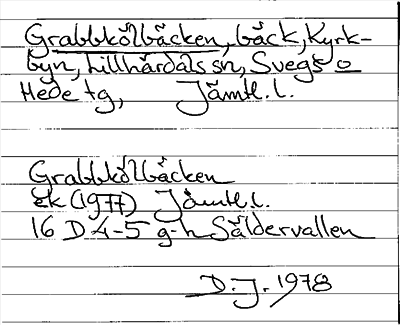 Grabbkölbäcken, bäck, Kyrk-
byn, Lillhärdals sn, Svegs o
Hede tg, Jämtl. l.
Grabbkölbäcken
Ek (1977) Jämtl. l.
16 D 4-5 g-h Säldervallen
D.J. 1978